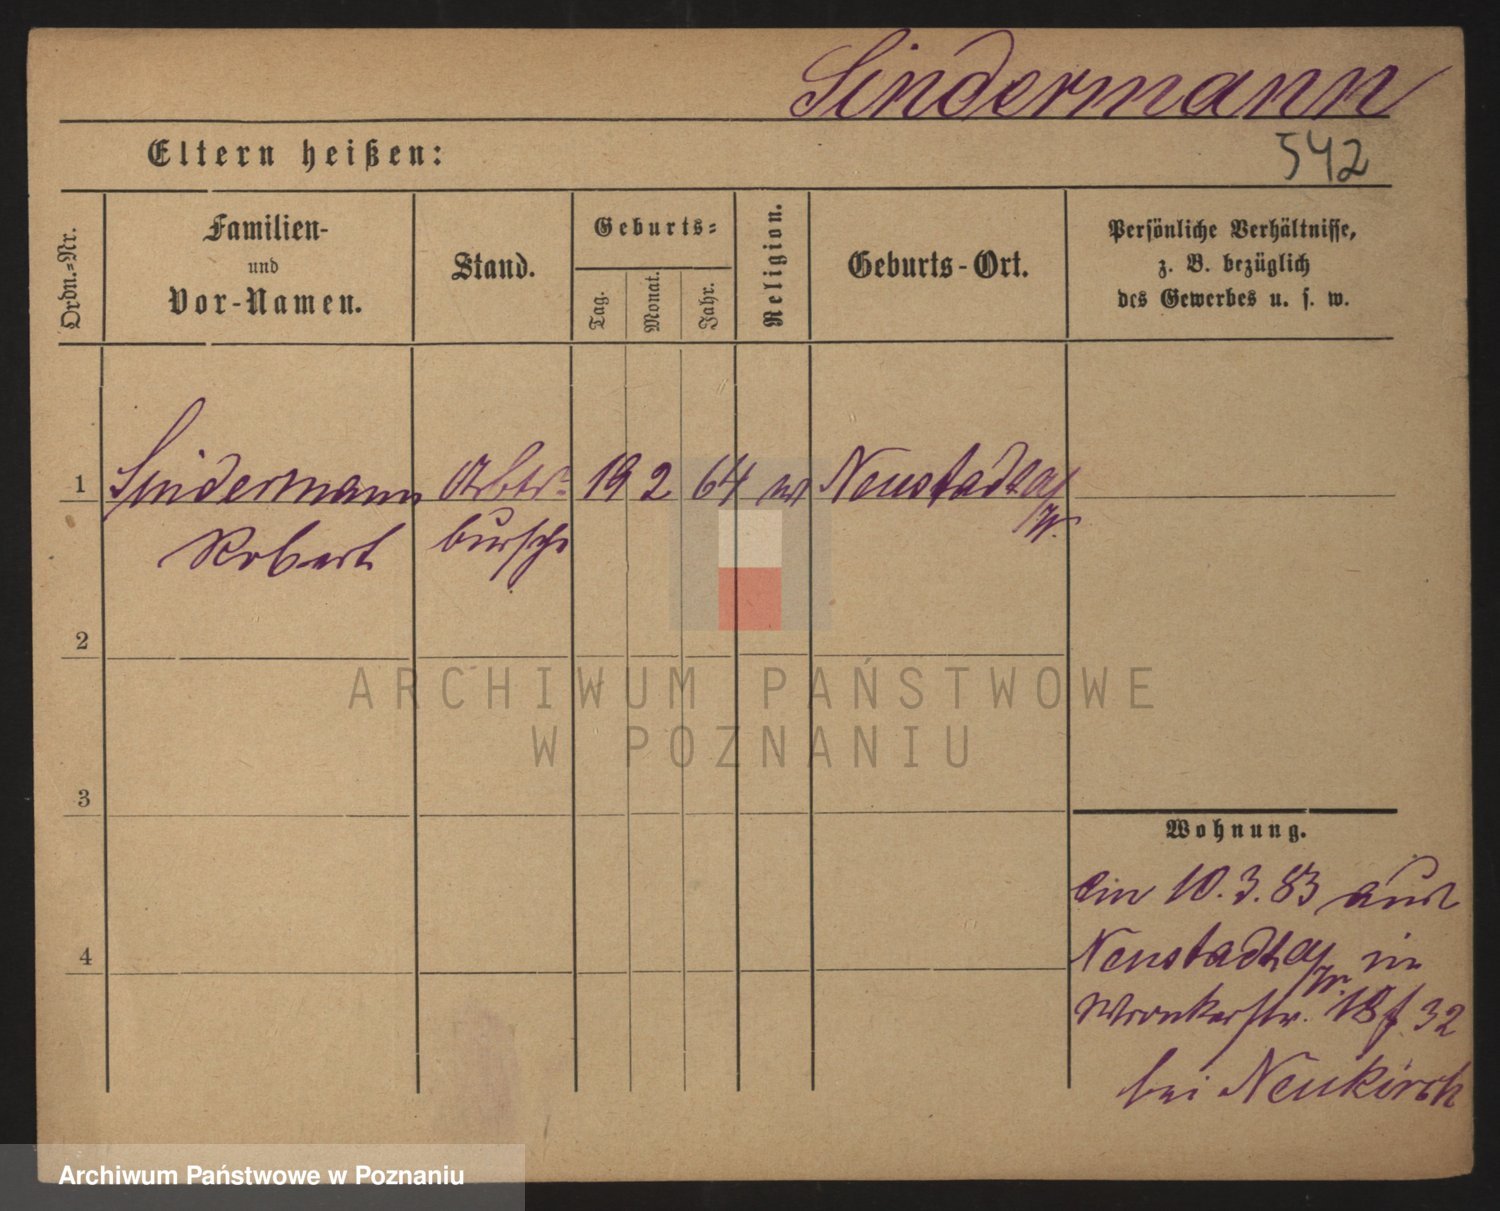 Sindermann
Eltern heißen:
542
Ordn.-Nr.
Familien-
und
Vor-Namen.
Stand.
Geburts-
Tag.
Monat.
Jahr.
Religion.
Geburts-Ort.
Persönliche Verhältnisse,
z. B. bezüglich
des Gewerbes u. s. w.
1 Sindermann Arbtr- 19 2 64 Neustadt a/W.
Robert bursche
2
ARCHIWUM PAŃSTWOWE
W POZNANIU
3
Wohnung.
4
10.3.83 aus
Neustadt a/W. in
Wronkerstr. 18 f. 32
bei Neukirch
Archiwum Państwowe w Poznaniu